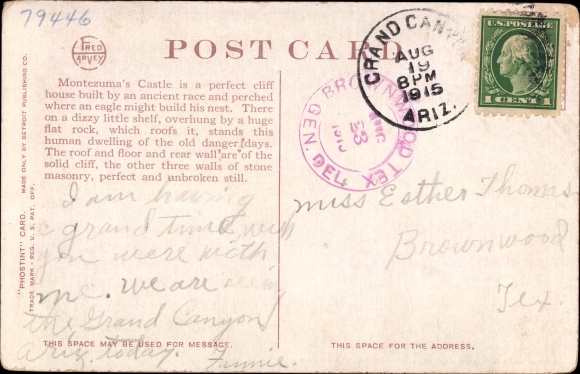 79446
FRED
HARVEY
POST CARD
GRAND CANYON
AUG
19
8 PM
1915
ARIZ.
U.S. POSTAGE
1 CENT 1
BROWNWOOD TEX.
AUG
23
1915
GEN. DEL.
Montezuma's Castle is a perfect cliff
house built by an ancient race and perched
where an eagle might build his nest. There
on a dizzy little shelf, overhung by a huge
flat rock, which roofs it, stands this
human dwelling of the old danger days.
The roof and floor and rear wall are of the
solid cliff, the other three walls of stone
masonry, perfect and unbroken still.
"PHOSTINT" CARD. MADE ONLY BY DETROIT PUBLISHING CO.
TRADE MARK - REG. U.S. PAT. OFF.
I am having
a grand time wish
you were with
me. We are seeing
the Grand Canyon
Ariz. today.
Fannie.
Miss Esther Thomas
Brownwood
Tex.
THIS SPACE MAY BE USED FOR MESSAGE.
THIS SPACE FOR THE ADDRESS.